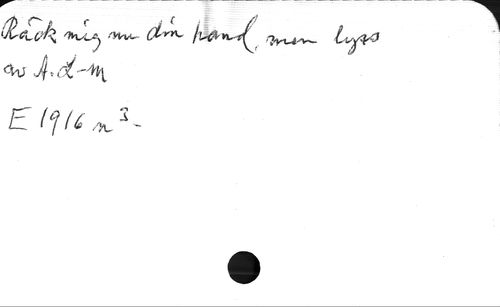 Räck mig nu din hand, men lyss
av A. L-m
E 1916 n 3-